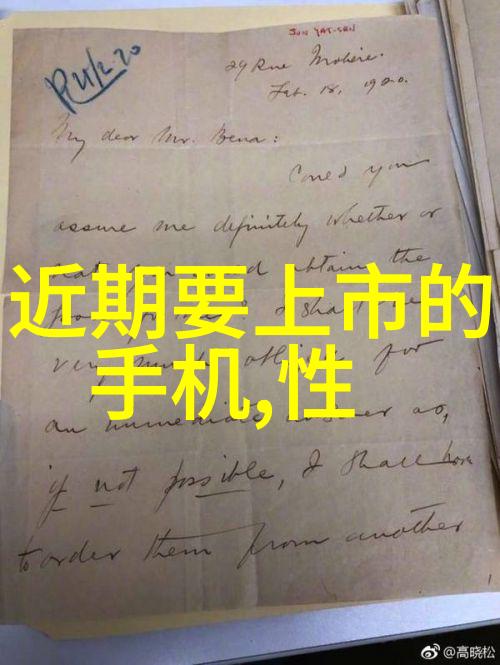 SUN YAT-SEN
R 21/2.20
29 Rue Molière.
Feb. 18, 1920.
My dear Mr. Bena:
Could you
assure me definitely whether or
not obtain the
I shall
very for
an immediate answer as,
if not possible, I shall have
to order them from another
近期要上市的
手机,性
@高晓松